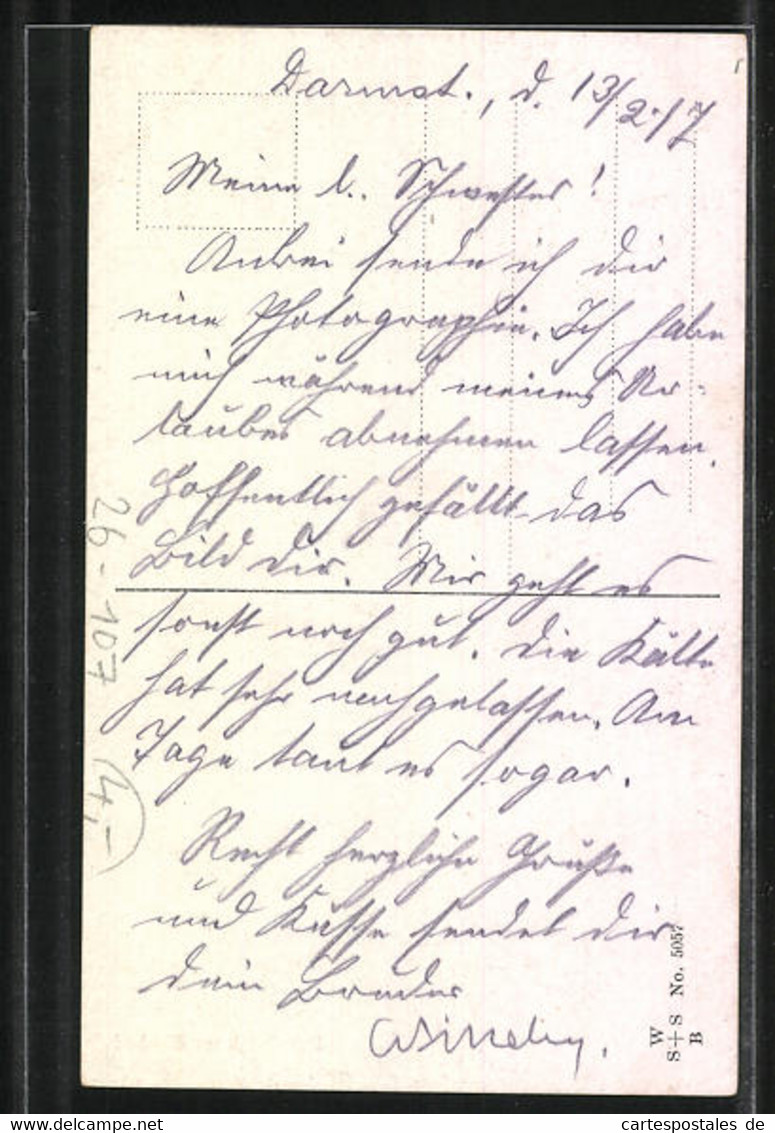 Darmst., d. 13/2.17
Meine l. Schwester!
Anbei sende ich dir
eine Photographie. Ich habe
mich während meines Ur-
laubes abnehmen lassen.
Hoffentlich gefällt das
Bild dir. Mir geht es
sonst noch gut. Die Kälte
hat sehr nachgelassen. Am
Tage taut es sogar.
Recht herzliche Grüße
und Küsse sendet dir
dein Bruder
26-107
(4,-
W
S+S No. 5057
B
www.delcampe.net
cartespostales de